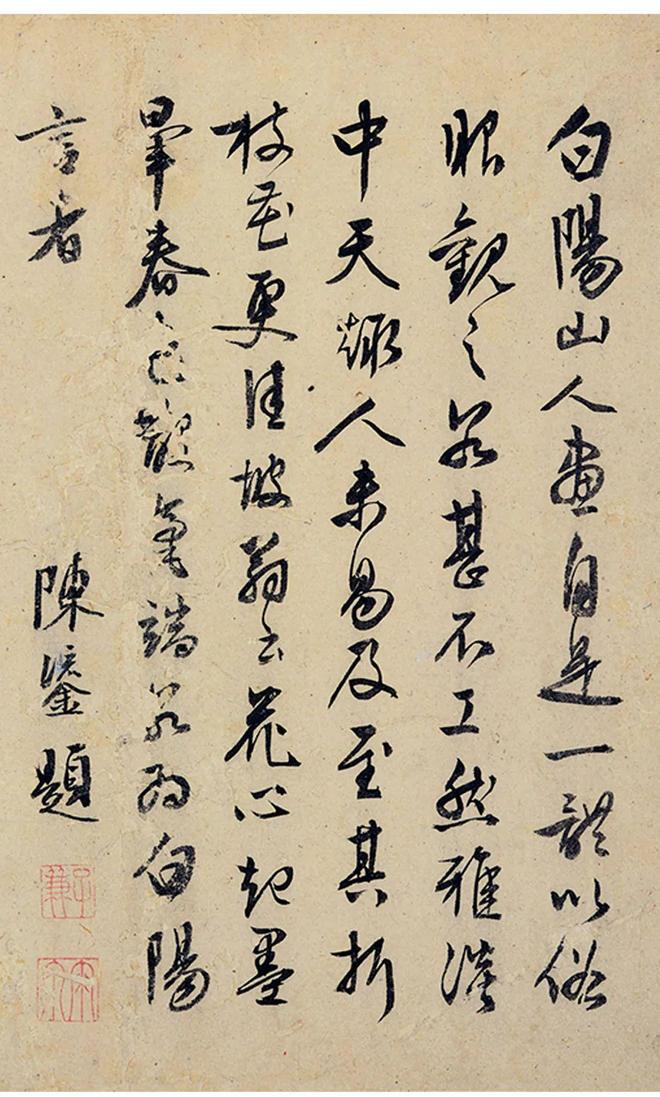 白陽山人畫自是一體以俗
眼觀之若甚不工然雅淡
中天趣人未易及至其折
枝花更佳坡翁云花心起墨
暈春色散毫端若為白陽
言者
陳鎏題
子兼